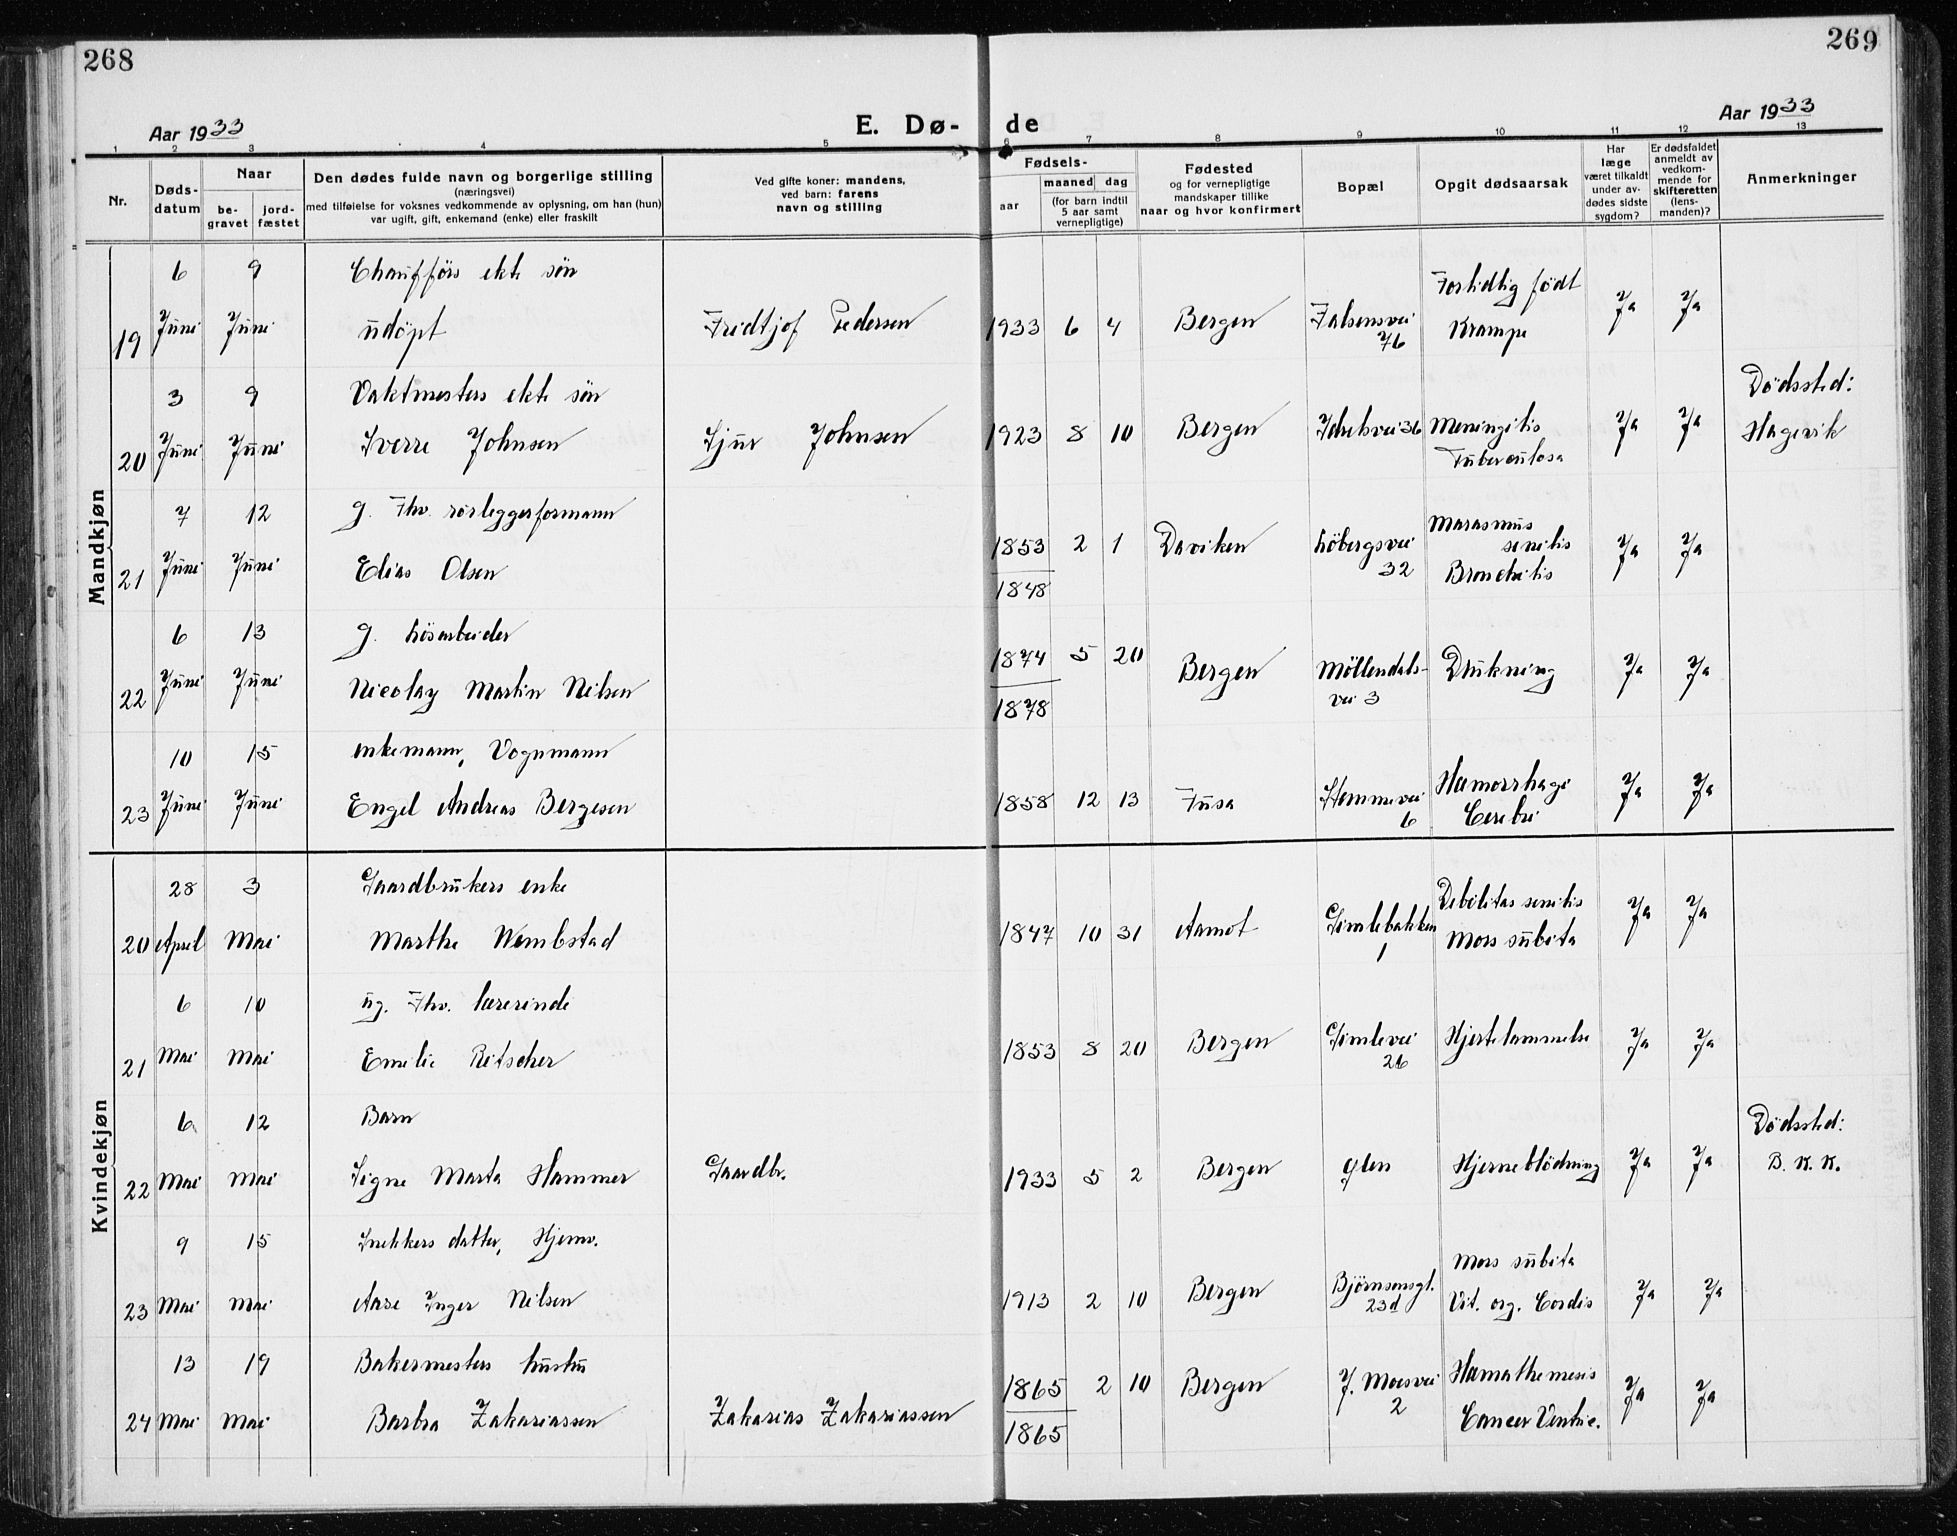 268
269
Aar 1933
E. Dø-
de
Aar 1933
1 2 3 4 5 6 7 8 9 10 11 12 13
Nr.
Døds-
datum
Naar
be-
gravet
jord-
fæstet
Den dødes fulde navn og borgerlige stilling
(næringsvei)
med tilføielse for voksnes vedkommende av oplysning, om han (hun)
var ugift, gift, enkemand (enke) eller fraskilt
Ved gifte koner: mandens,
ved barn: farens
navn og stilling
Fødsels-
aar
maaned
dag
(for barn indtil
5 aar samt
vernepligtige)
Fødested
og for vernepligtige
mandskaper tillike
naar og hvor konfirmert
Bopæl
Opgit dødsaarsak
Har
læge
været tilkaldt
under av-
dødes sidste
sygdom?
Er dødsfaldet
anmeldt av
vedkom-
mende for
skifteretten
(lens-
manden)?
Anmerkninger
Mandkjøn
6 9 Chaufførs ekte søn
19 Juni Juni udöpt Fridtjof Pedersen 1933 6 4 Bergen Falsensvei 76
Fortidlig födt
Krampe
Ja Ja
3 9 Vaktmesters ekte søn
20 Juni Juni Sverre Johnsen Sjur Johnsen 1923 8 10 Bergen Idretsvei 36
Meningitis
Tuberculosa
Ja Ja
Dödssted:
Hagevik
7 12 g. Fhv. rörleggerformann
21 Juni Juni Elias Olsen
1853 2 1
1848
Daviken
Löbergsvei
32
Marasmus
senilis
Bronchitis
Ja Ja
6 13 g. Lösarbeider
22 Juni Juni Nicolay Martin Nilsen
1874 5 20
1878
Bergen
Möllendals-
vei 3
Drukning
Ja Ja
10 15 enkemann, Vognmann
23 Juni Juni Engel Andreas Bergesen
1858 12 13 Fusa
Stemmevei
6
Hæmorrhagi
Cerebri
Ja Ja
Kvindekjøn
28 3 Gaardbrukers enke
20 April Mai Marthe Wembstad
1847 10 31 Aamot
Gimlebakken
1
Debilitas senilis
Mors subita
Ja Ja
6 10 ug. Fhv. lærerinde
21 Mai Mai Emilie Ritscher
1853 8 20 Bergen
Gimlevei
26
Hjertelammelse
Ja Ja
6 12 Barn
22 Mai Mai Signe Marta Hammer Gaardbr.
1933 5 2 Bergen
Hjerneblödning
Ja Ja
Dödssted:
B. K. K.
9 15 Snekkers datter, Hjemv.
23 Mai Mai Aase Inger Nilsen
1913 2 10 Bergen
Björnsonsgt.
23d
Mors subita
Vit. org. Cordis
Ja Ja
13 19 Bakermesters hustru
24 Mai Mai Barbra Zakariassen Zakarias Zakariassen
1865 2 10
1865
Bergen
J. Moesvei
2
Hæmathemesis
Cancer Ventric.
Ja Ja